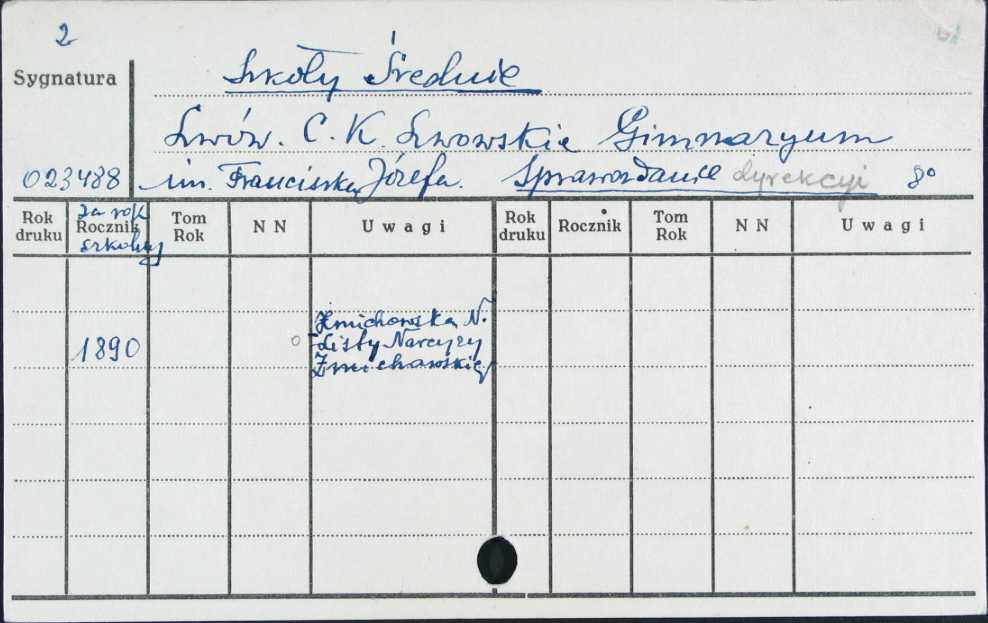 2
Sygnatura
Szkoły Średnie
Lwów. C. K. Lwowskie Gimnazyum
023488 im. Franciszka Józefa. Sprawozdanie dyrekcyi 8o
Rok druku za rok Rocznik szkolny Tom Rok N N Uwagi Rok druku Rocznik Tom Rok N N Uwagi
Żmichowska N.
1890 o Listy Narcyzy
Żmichowskiej